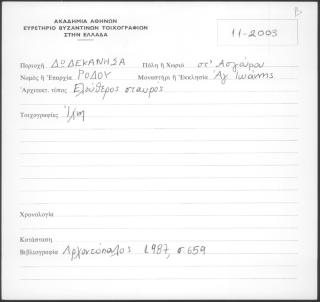 Β
ΑΚΑΔΗΜΙΑ ΑΘΗΝΩΝ
ΕΥΡΕΤΗΡΙΟ ΒΥΖΑΝΤΙΝΩΝ ΤΟΙΧΟΓΡΑΦΙΩΝ
ΣΤΗΝ ΕΛΛΑΔΑ
11-2003
Περιοχή ΔΩΔΕΚΑΝΗΣΑ Πόλη ἤ Χωριό στ' Ασγούρου
Νομός ἤ Ἐπαρχία ΡΟΔΟΥ Μοναστήρι ἤ Ἐκκλησία Ἁγ Ιωάννης
Ἀρχιτεκτ. τύπος Ἐλεύθερος σταυρος
Τοιχογραφίες
Χρονολογία
Κατάσταση
Βιβλιογραφία Αρχοντόπουλος 1987, σ.659